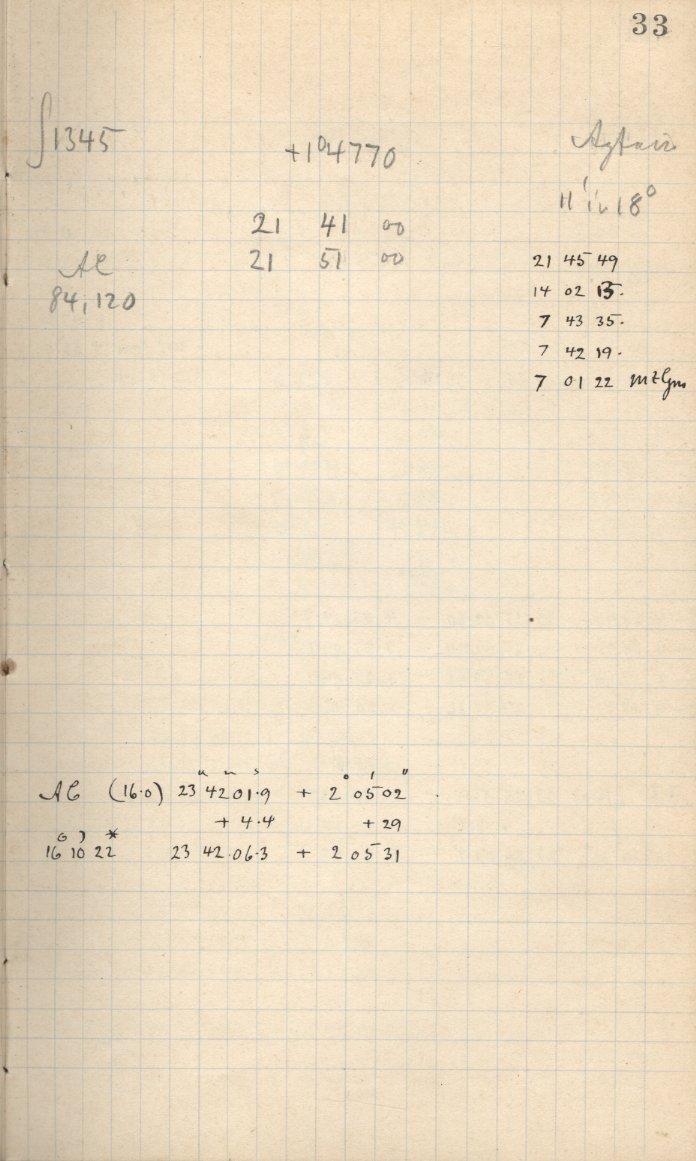 33
∫1345
+1°4770
21 41 00
AC
21 51 00
84,120
18°
21 45 49
14 02 15.
7 43 35.
7 42 19.
7 01 22
AC (16.0) 23 42 01.9 + 2° 05' 02"
+ 4.4 + 29
16 10 22 23 42.06.3 + 2 05 31